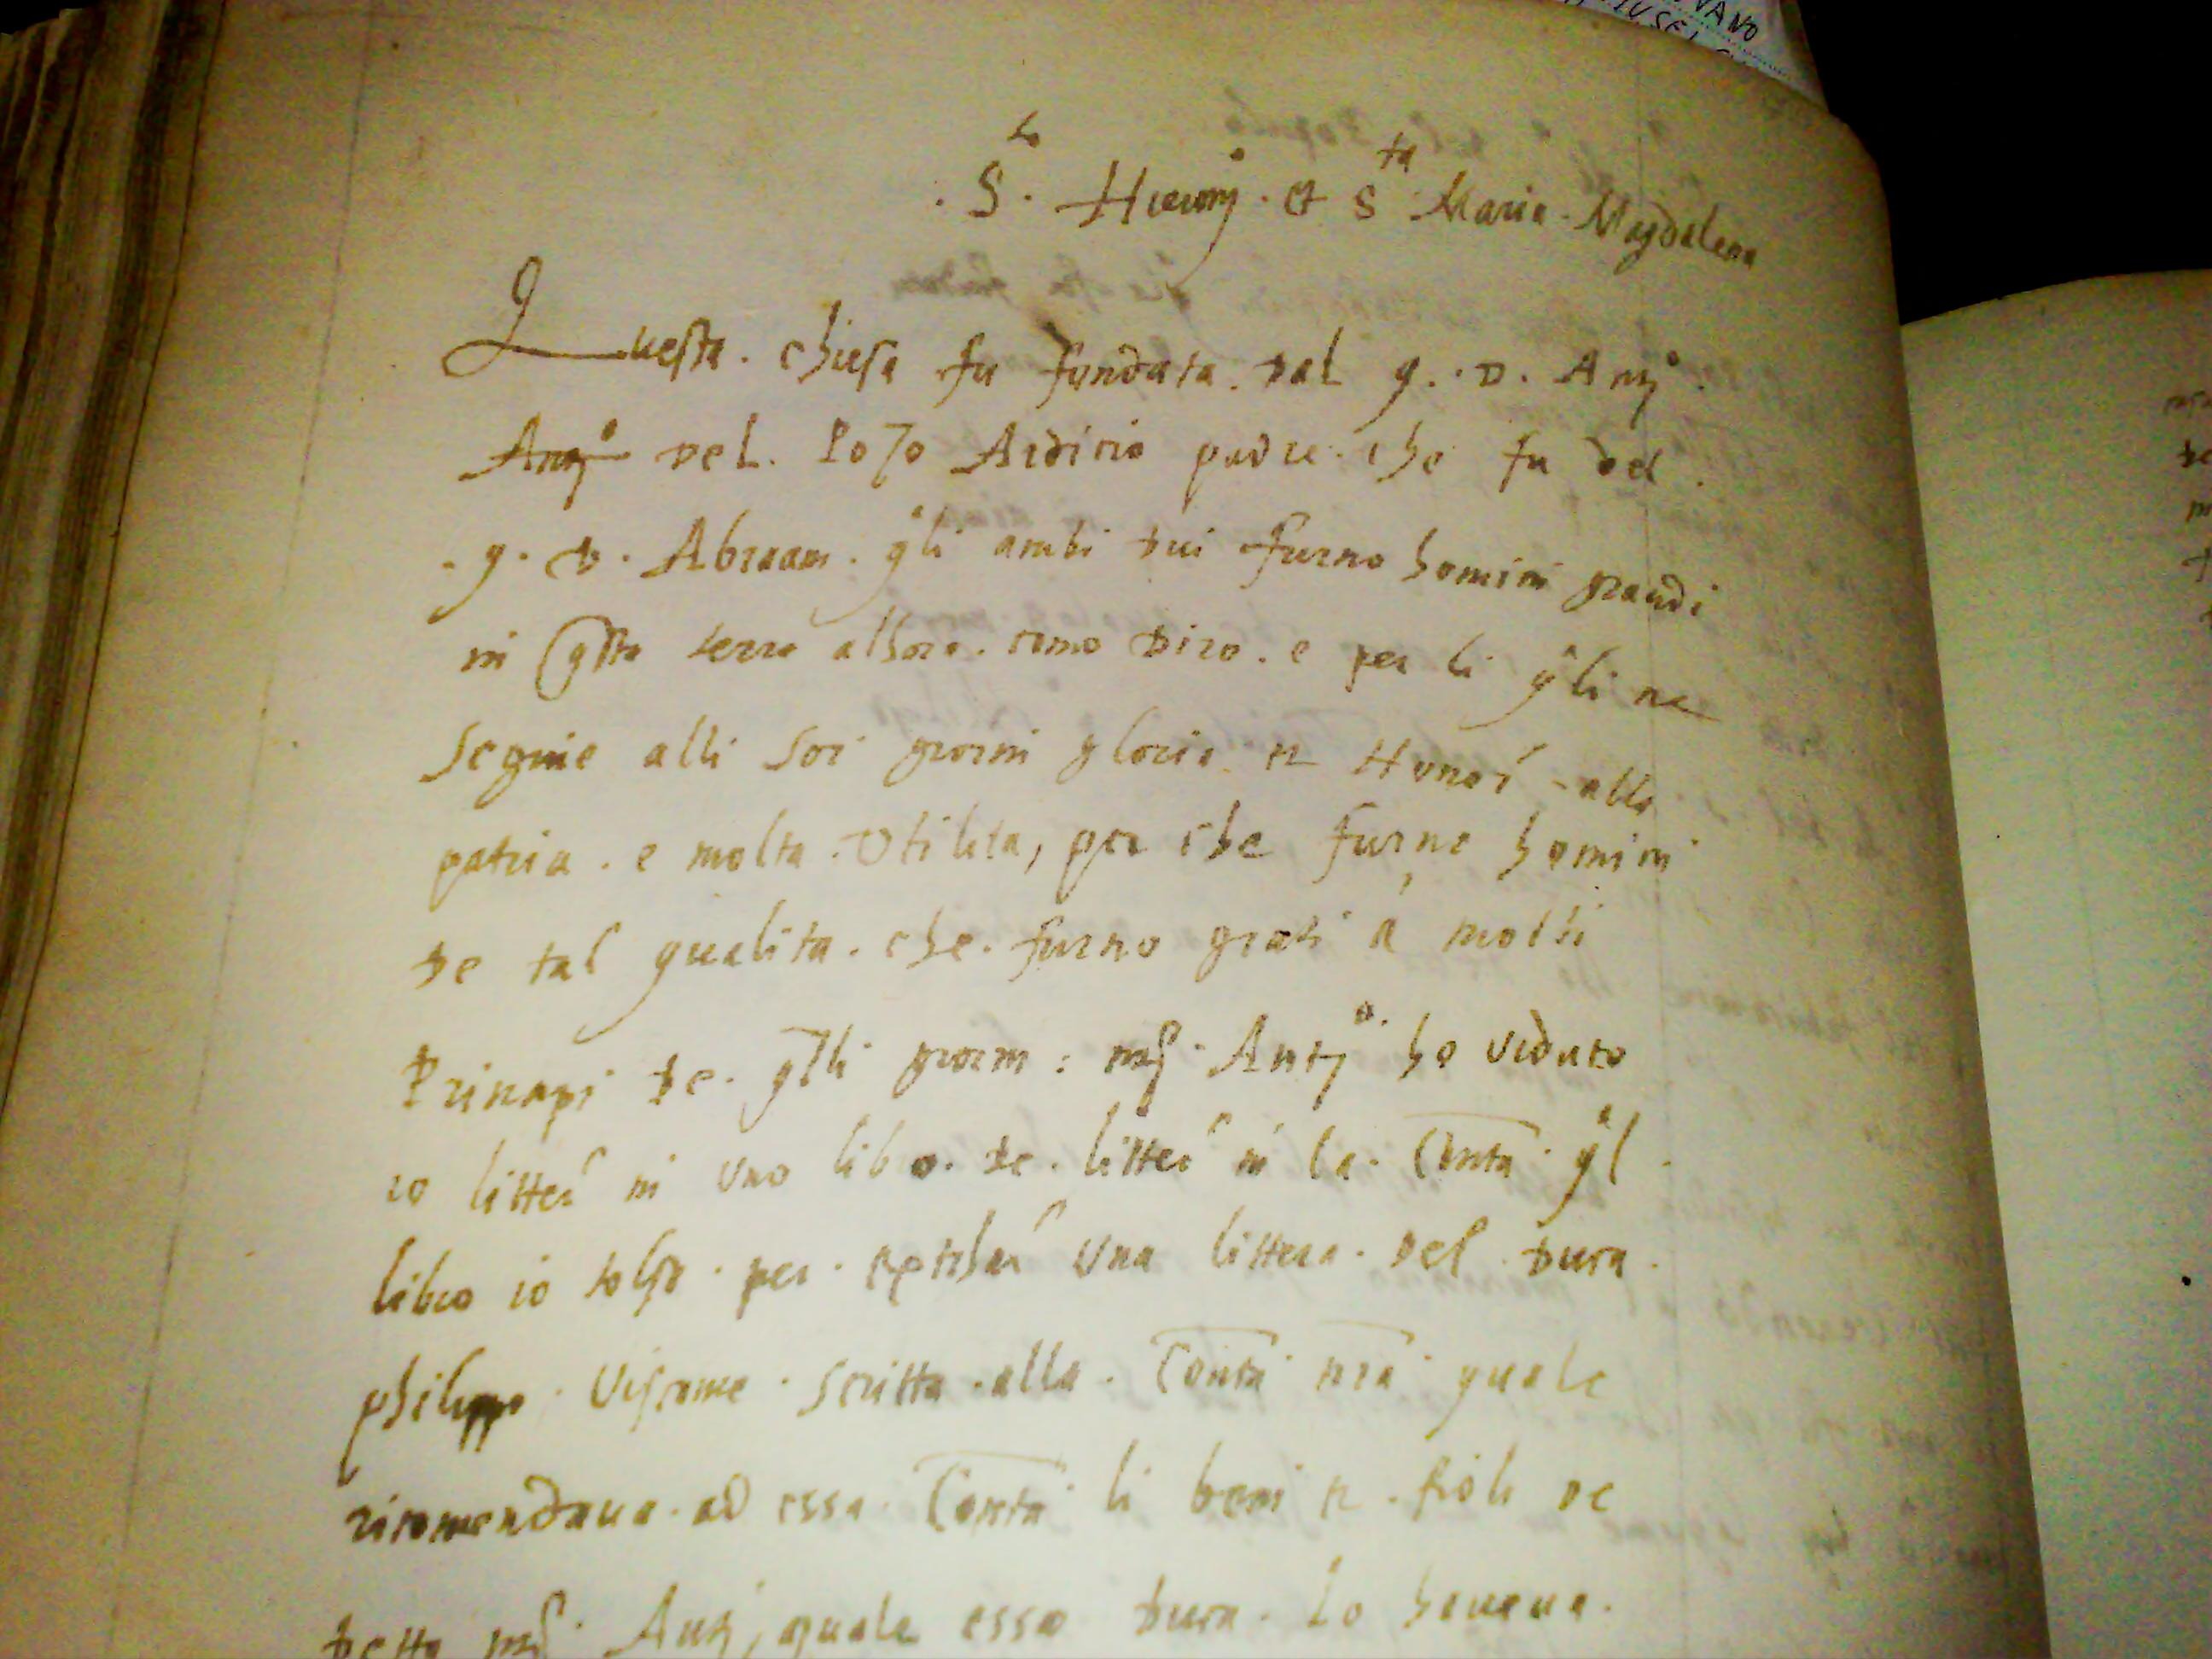 VANO
. S.to Hieronj.o et S.ta Maria Magdalena
Questa. chiesa fu fundata. dal q.. D. Antj.o
Antj.o del. Pozo Aidicio padre che fu del.
. q. D. Abraam. q.ali ambi dui furno homini grandi
in q̃sta terra alhora. como diro. e per li q.ali ne
seguie alli soi giorni gloria et Honor alla
patria. e molta. Utilita, per che furno homini
de tal qualita. che. furno grati à molti
Principi de. q̃lli giorni: ms. Antj.o ho veduto
io litter in uno libro. de. litter in la. Co͞mta q.al
libro io tolsi. per. una littera. del duca.
philippo. Visconte. scritta. alla. Co͞mta nr̃a quale
ricomendava. ad essa. Co͞mta li beni et. fioli de
detto ms. Antj, quale esso duca. lo haveva.